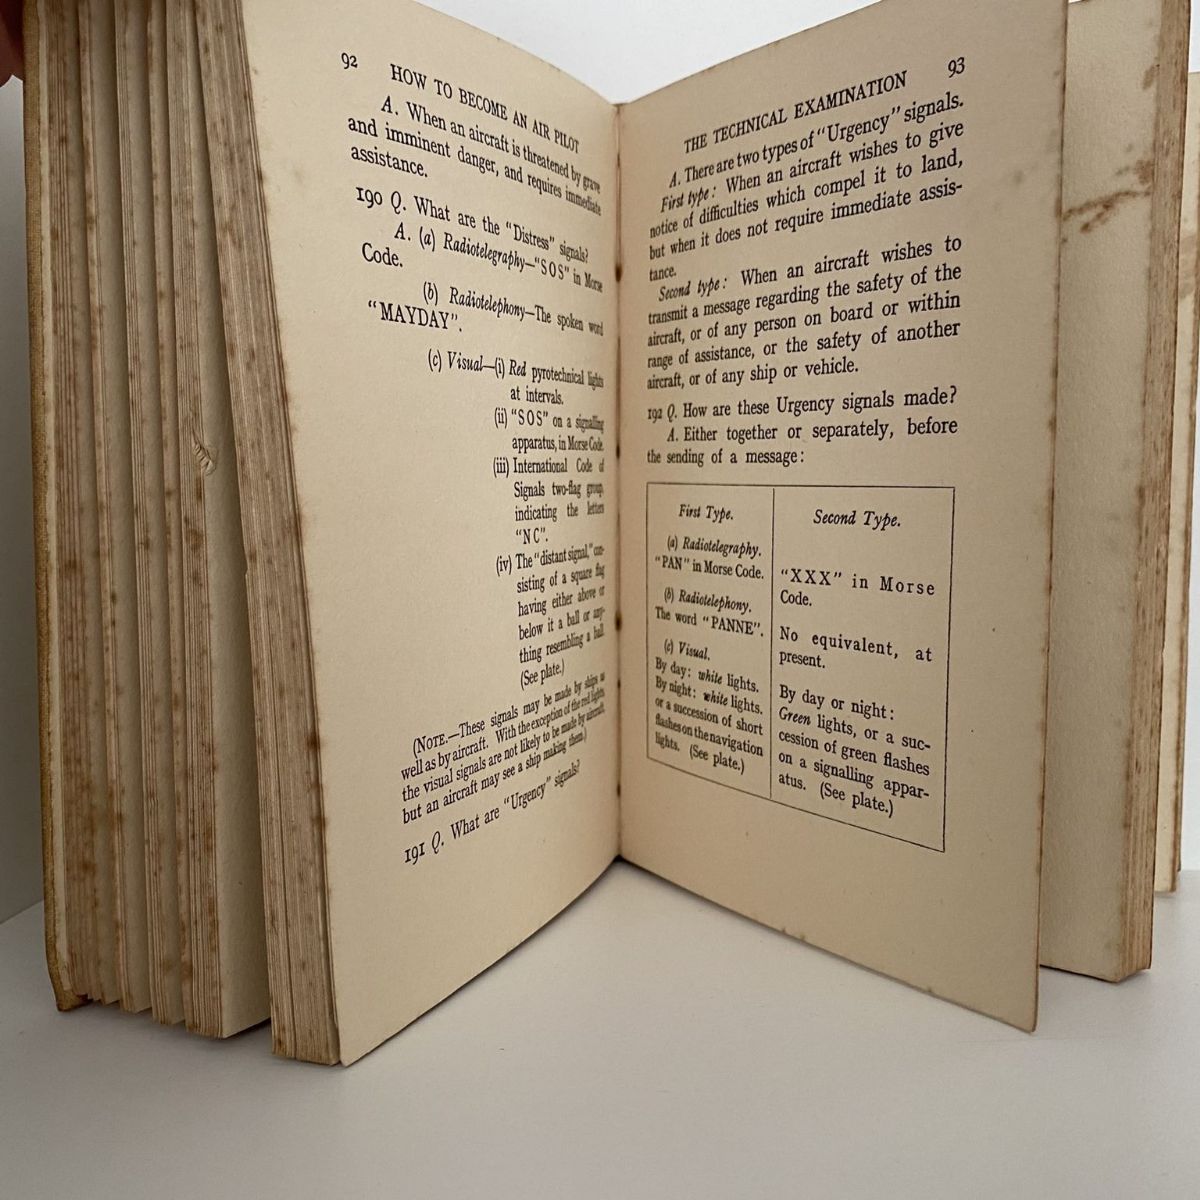 92 HOW TO BECOME AN AIR PILOT
A. When an aircraft is threatened by grave
and imminent danger, and requires immediate
assistance.
190 Q. What are the "Distress" signals?
A. (a) Radiotelegraphy—"SOS" in Morse
Code.
(b) Radiotelephony—The spoken word
"MAYDAY".
(c) Visual—(i) Red pyrotechnical lights
at intervals.
(ii) "SOS" on a signalling
apparatus, in Morse Code.
(iii) International Code of
Signals two-flag group,
indicating the letters
"NC".
(iv) The "distant signal," con-
sisting of a square flag
having either above or
below it a ball or any-
thing resembling a ball.
(See plate.)
(NOTE.—These signals may be made by ships as
well as by aircraft. With the exception of the red lights,
the visual signals are not likely to be made by aircraft,
but an aircraft may see a ship making them.)
191 Q. What are "Urgency" signals?
THE TECHNICAL EXAMINATION 93
A. There are two types of "Urgency" signals.
First type: When an aircraft wishes to give
notice of difficulties which compel it to land,
but when it does not require immediate assis-
tance.
Second type: When an aircraft wishes to
transmit a message regarding the safety of the
aircraft, or of any person on board or within
range of assistance, or the safety of another
aircraft, or of any ship or vehicle.
192 Q. How are these Urgency signals made?
A. Either together or separately, before
the sending of a message:
First Type.
(a) Radiotelegraphy.
"PAN" in Morse Code.
(b) Radiotelephony.
The word "PANNE".
(c) Visual.
By day: white lights.
By night: white lights.
or a succession of short
flashes on the navigation
lights. (See plate.)
Second Type.
"XXX" in Morse
Code.
No equivalent, at
present.
By day or night:
Green lights, or a suc-
cession of green flashes
on a signalling appar-
atus. (See plate.)